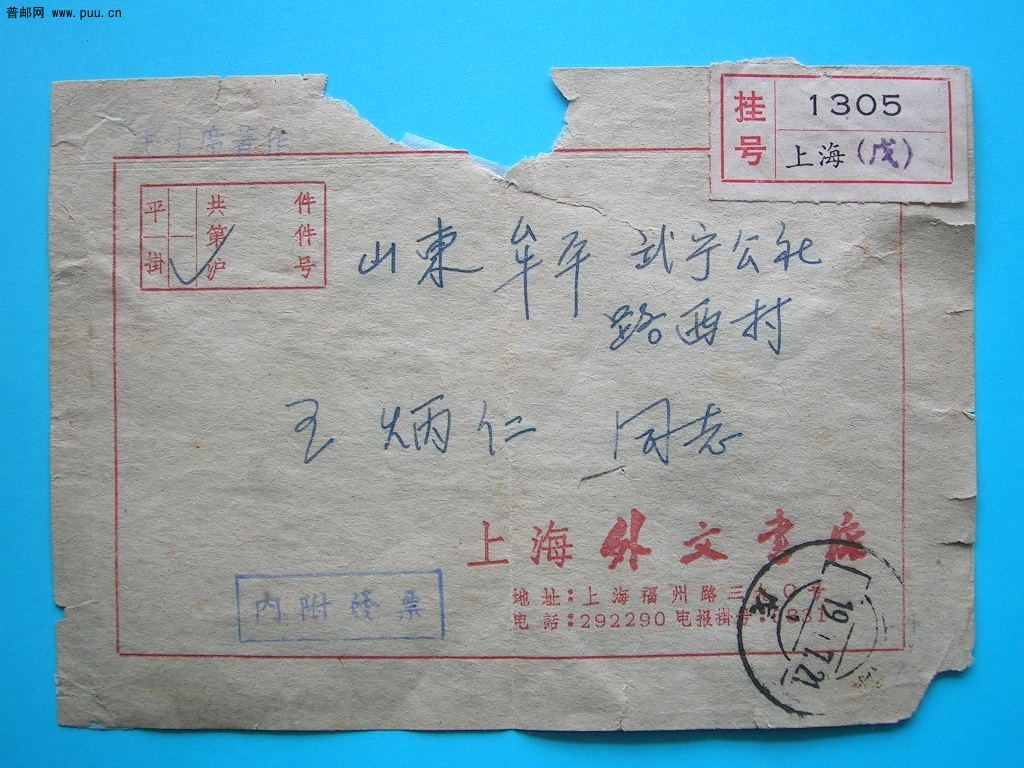 普邮网 www.puu.cn
挂号
1305
上海(戊)
平 共 件
第 件
掛 沪 号
山東 牟平 武宁公社
路西村
王炳仁 同志
上海外文書店
地址:上海福州路三九〇号
電話:292290 电报掛号:
内附發票